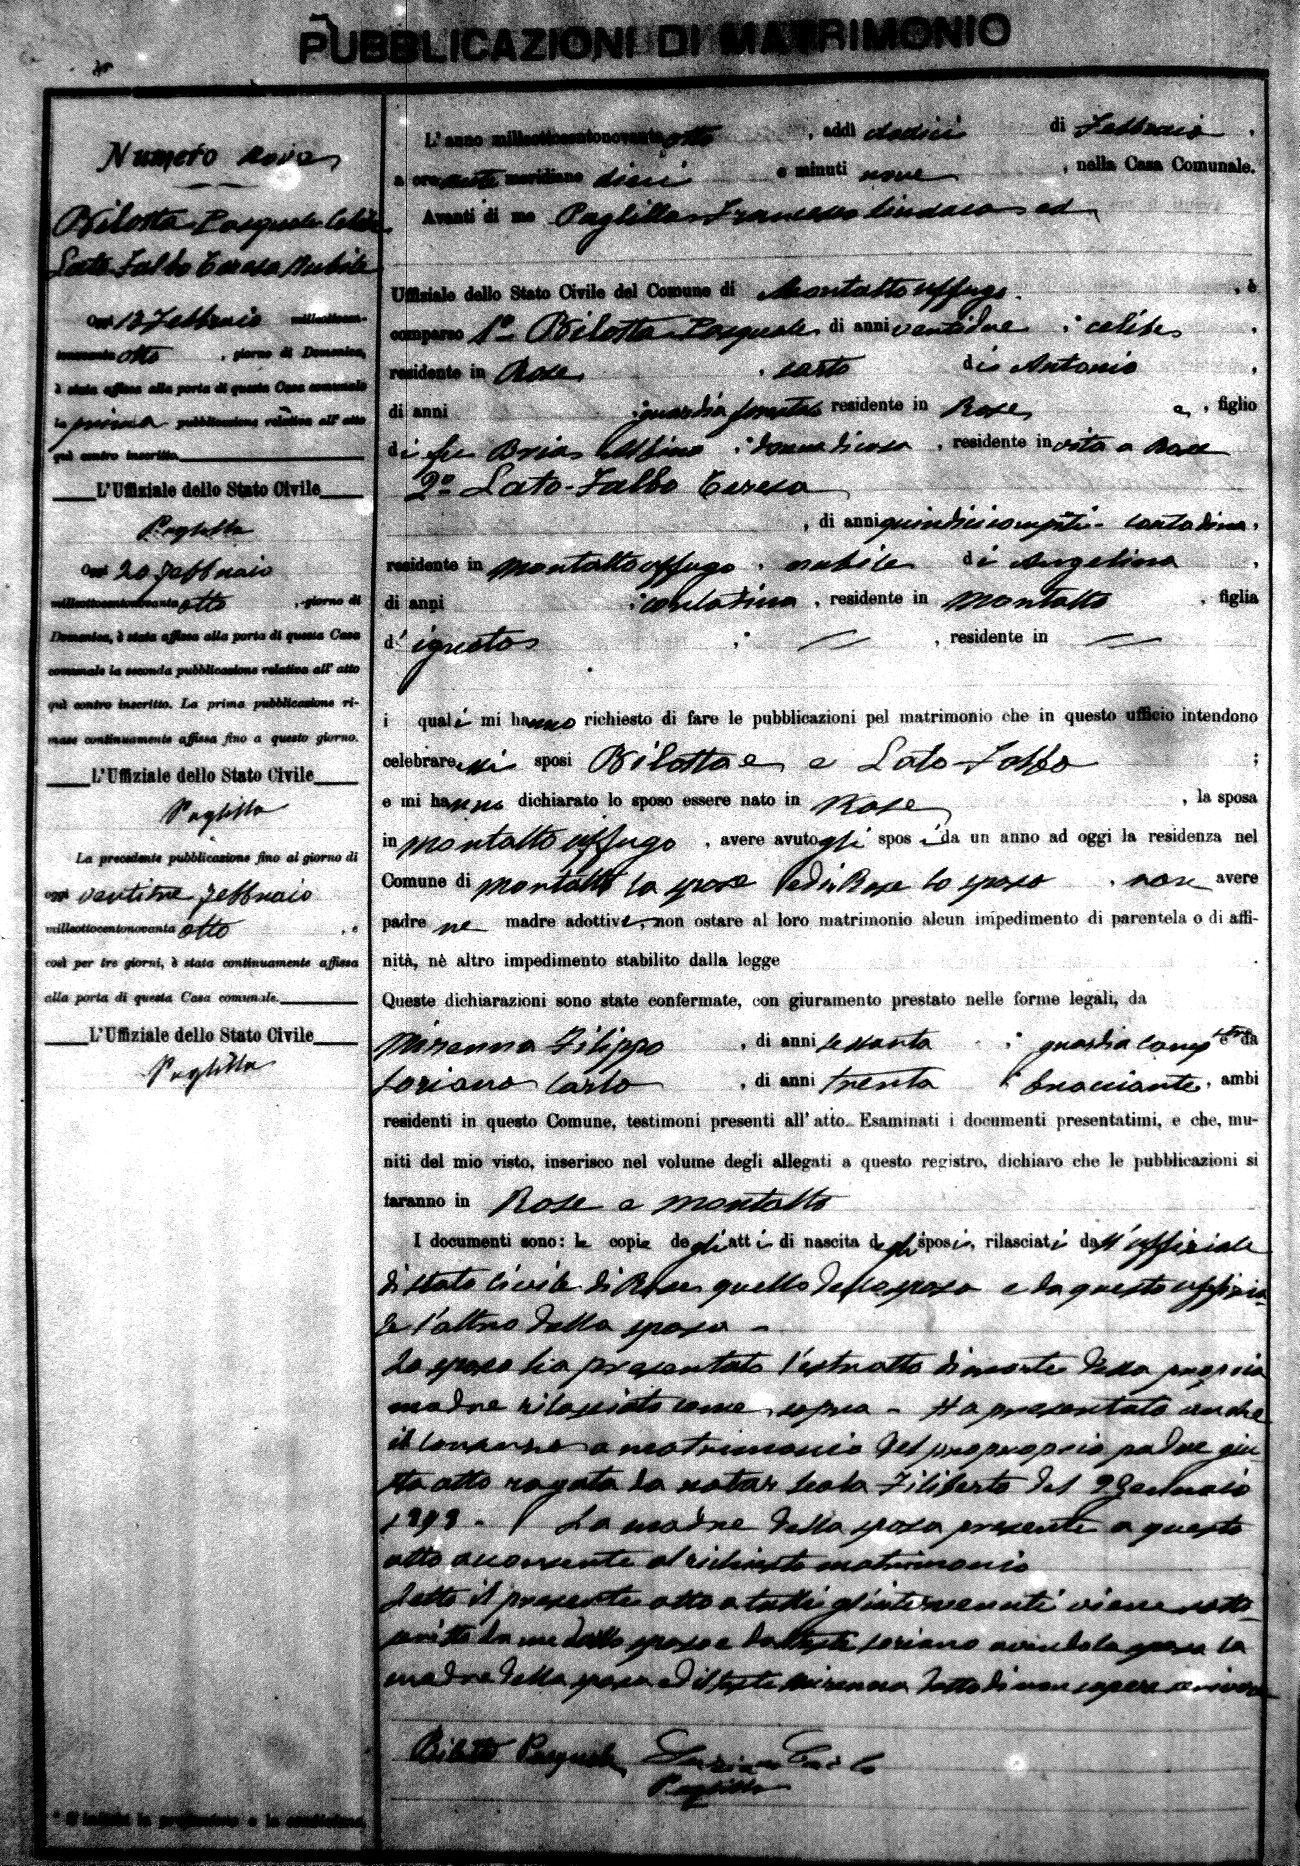 PUBBLICAZIONI DI MATRIMONIO
Numero nove
Bilotta Pasquale Celibe
Lato Falbo Teresa Nubile
Oggi 13 Febbraio milleottocento-
novanta otto, giorno di Domenica,
è stata affissa alla porta di questa Casa comunale
la prima pubblicazione relativa all'atto
quì contro inscritto
L'Uffiziale dello Stato Civile
Puglilla
Oggi 20 Febbraio
milleottocentonovanta otto, giorno di
Domenica, è stata affissa alla porta di questa Casa
comunale la seconda pubblicazione relativa all'atto
quì contro inscritto. La prima pubblicazione ri-
mase continuamente affissa fino a questo giorno.
L'Uffiziale dello Stato Civile
Puglilla
La precedente pubblicazione fino al giorno di
oggi ventitre Febbraio
milleottocentonovanta otto, e
così per tre giorni, è stata continuamente affissa
alla porta di questa Casa comunale.
L'Uffiziale dello Stato Civile
Puglilla
* Si indichi la professione o la condizione.
L'anno milleottocentonovanta otto, addì dodici di Febbraio,
a ore anti meridiane dieci e minuti nove, nella Casa Comunale.
Avanti di me Puglilla Francesco Sindaco ed
Uffiziale dello Stato Civile del Comune di Montalto Uffugo, è
comparso 1º Bilotta Pasquale di anni ventidue; celibe,
residente in Rose, sarto di Antonio,
di anni ; guardia forestale residente in Rose e, figlio
di fu Bria ; donna di casa, residente in vita a Rose
2º Lato-Falbo Teresa
, di anni quindici compiti - contadina,
residente in Montalto Uffugo, nubile di Angelina,
di anni ; contadina, residente in Montalto, figlia
d' ignoto ; // , residente in //
i quali mi hanno richiesto di fare le pubblicazioni pel matrimonio che in questo ufficio intendono
celebrare essi sposi Bilotta e Lato-Falbo ;
e mi hanno dichiarato lo sposo essere nato in Rose, la sposa
in Montalto Uffugo, avere avuto gli sposi da un anno ad oggi la residenza nel
Comune di Montalto la sposa ed in Rose lo sposo, non avere
padre ne madre adottivi, non ostare al loro matrimonio alcun impedimento di parentela o di affi-
nità, nè altro impedimento stabilito dalla legge
Queste dichiarazioni sono state confermate, con giuramento prestato nelle forme legali, da
Mirenna Filippo, di anni sessanta ; guardia campestre e da
Soriano Carlo, di anni trenta ; bracciante, ambi
residenti in questo Comune, testimoni presenti all'atto. Esaminati i documenti presentatimi, e che, mu-
niti del mio visto, inserisco nel volume degli allegati a questo registro, dichiaro che le pubblicazioni si
faranno in Rose e Montalto
I documenti sono: le copie degli atti di nascita degli sposi, rilasciati dall'uffiziale
di stato Civile di Rose quello dello sposo e da questo uffizia-
le l'altro della sposa -
Lo sposo ha presentato l'estratto di morte della propria
madre rilasciato come sopra - Ha presentato anche
il consenso a matrimonio del proprio padre giu-
sta atto rogato da notar Scola Filiberto del 9 Gennaio
1898 - La madre della sposa presente a questo
atto acconsente al richiesto matrimonio
Letto il presente atto a tutti gl'intervenuti viene sotto-
scritto da me dallo sposo e dal teste Soriano avendo la sposa la
madre della sposa ed il teste Mirenna detto di non sapere scrivere
Bilotta Pasquale Soriano Carlo
Puglilla